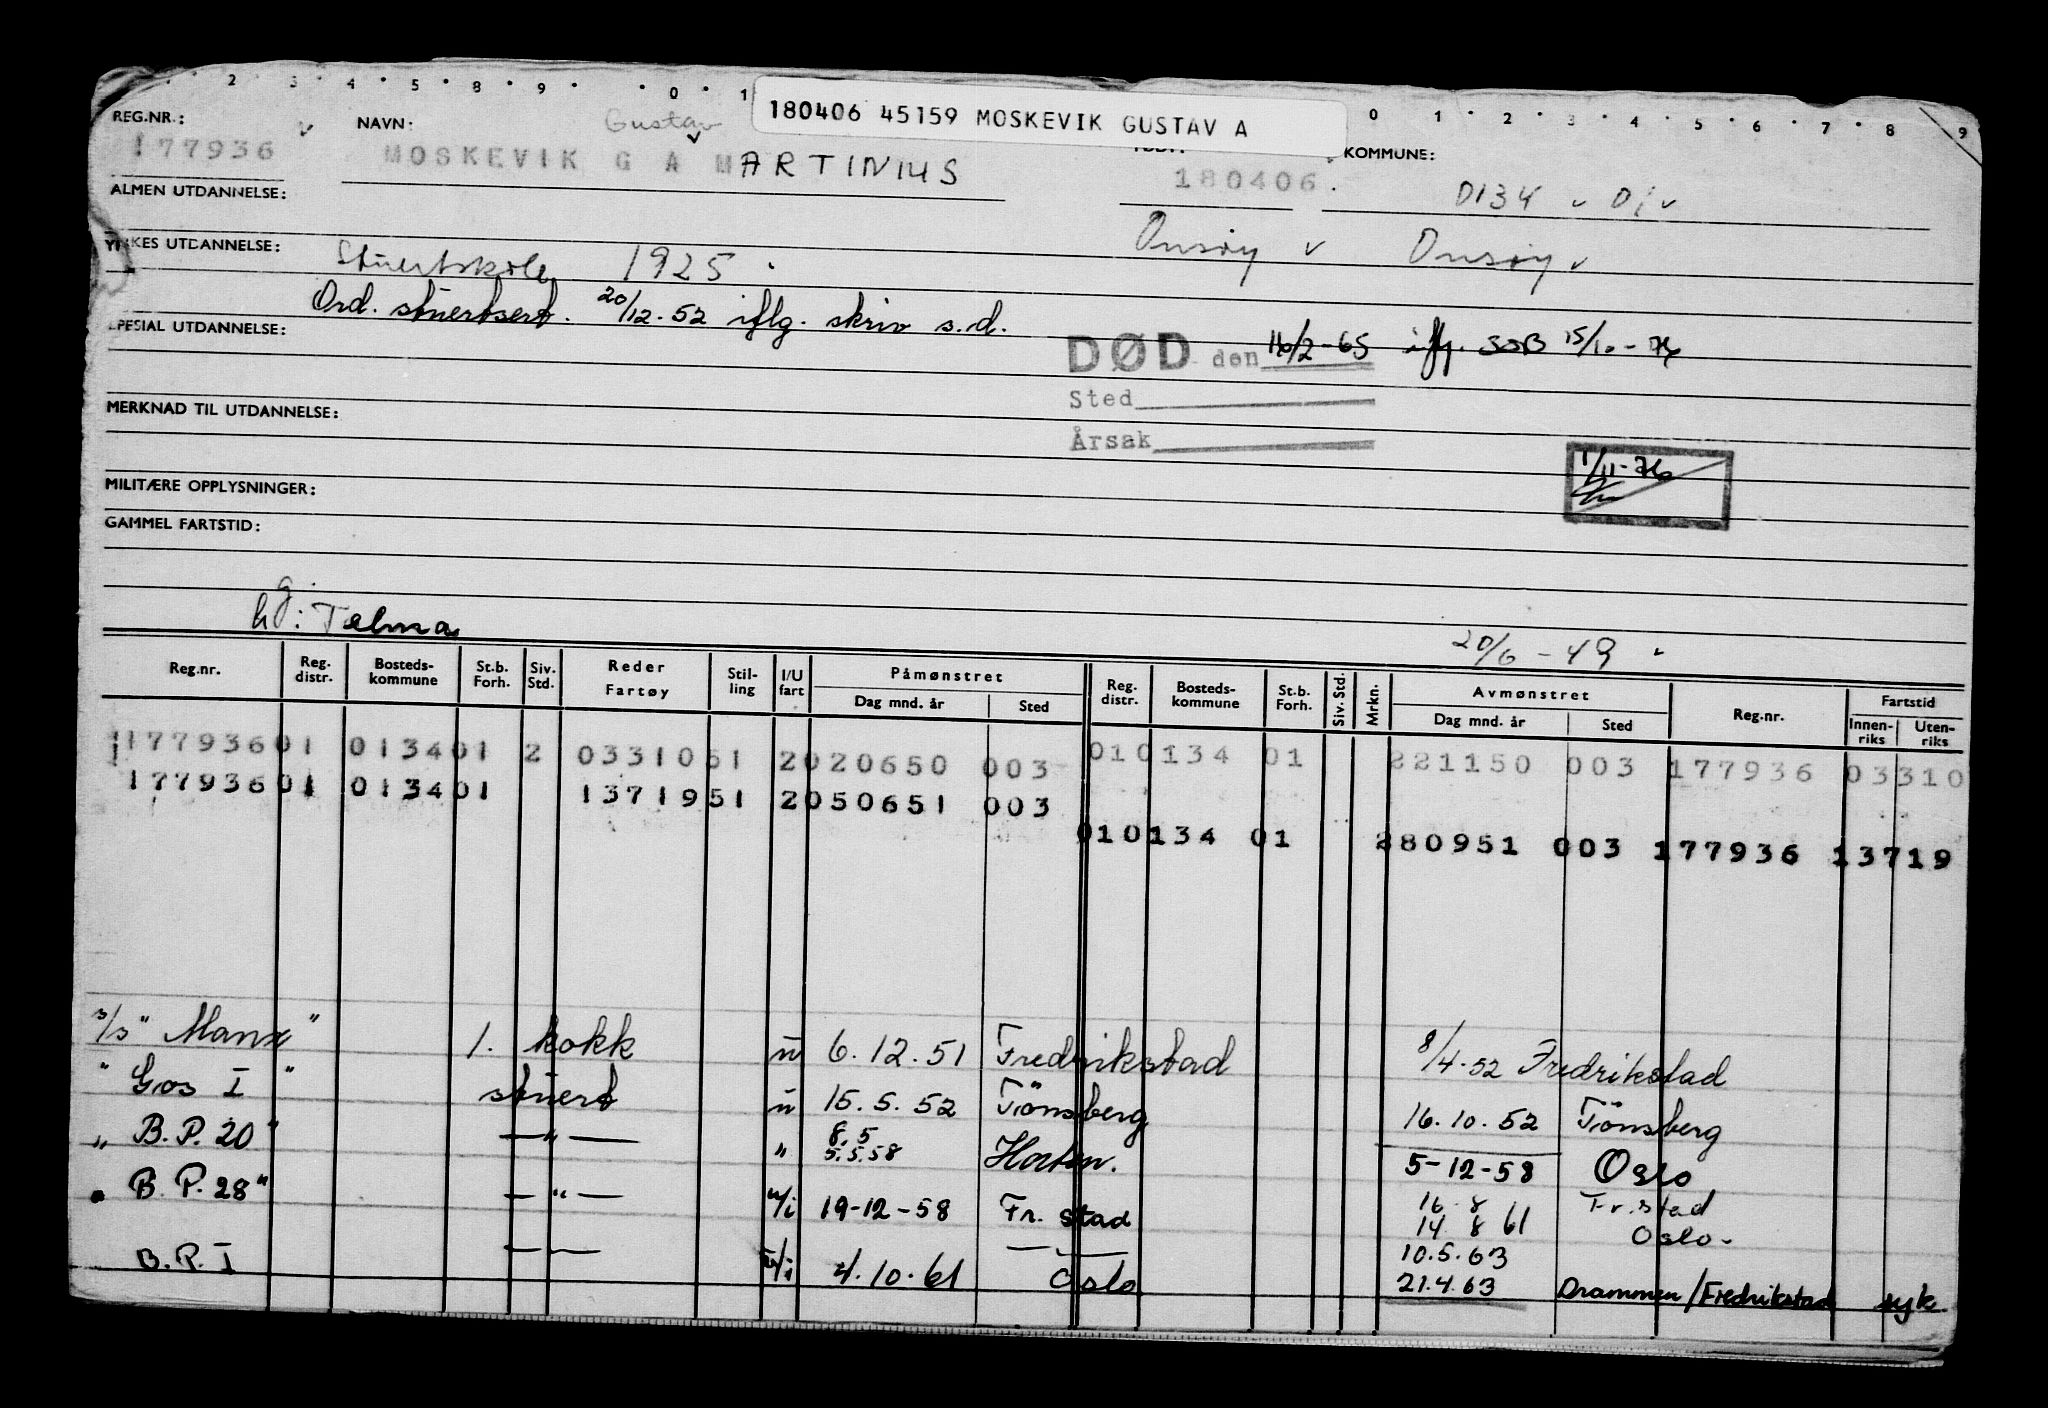 2 3 4 5 8 9 0 1 0 1 2 3 4 5 6 7 8 9
180406 45159 MOSKEVIK GUSTAV A
REG.NR.: NAVN: Gustav KOMMUNE:
177936 MOSKEVIK G A MARTINIUS 180406 0134 01
ALMEN UTDANNELSE:
Onsøy Onsøy
YRKES UTDANNELSE: Stuertskole 1925
Ord. stuertsert. 20/12-52 iflg. skriv s.d.
SPESIAL UTDANNELSE:
DØD den 16/2-65 iflg. SSB 15/10-76
Sted
MERKNAD TIL UTDANNELSE:
Årsak
1/11-76
MILITÆRE OPPLYSNINGER:
GAMMEL FARTSTID:
hg: Telma
20/6-49
Reg.nr. Reg. distr. Bosteds-kommune St.b. Forh. Siv. Std. Reder Fartøy Stil-ling I/U fart Påmønstret Dag mnd. år Sted Reg. distr. Bosteds-kommune St.b. Forh. Siv. Std. Mrkn. Avmønstret Dag mnd. år Sted Reg.nr. Fartstid Innen-riks Uten-riks
177936 01 0134 01 2 03310 51 2 020650 003 01 0134 01 221150 003 177936 03310
177936 01 0134 01 13719 51 2 050651 003
01 0134 01 280951 003 177936 13719
s/s "Manx" 1. kokk u 6.12.51 Fredrikstad 8/4-52 Fredrikstad
" Gos I " stuert u 15.5.52 Tönsberg 16.10.52 Tönsberg
" B.P. 20" —"— " 8.5 5.5.58 Horten. 5-12-58 Oslo
" B.P. 28" —"— u/i 19-12-58 Fr. stad 16.8 Fr.stad
14 8 61 Oslo-
10.5.63
B.P. I u/i 4.10.61 Oslo 21.4.63 Drammen/Fredrikstad syk